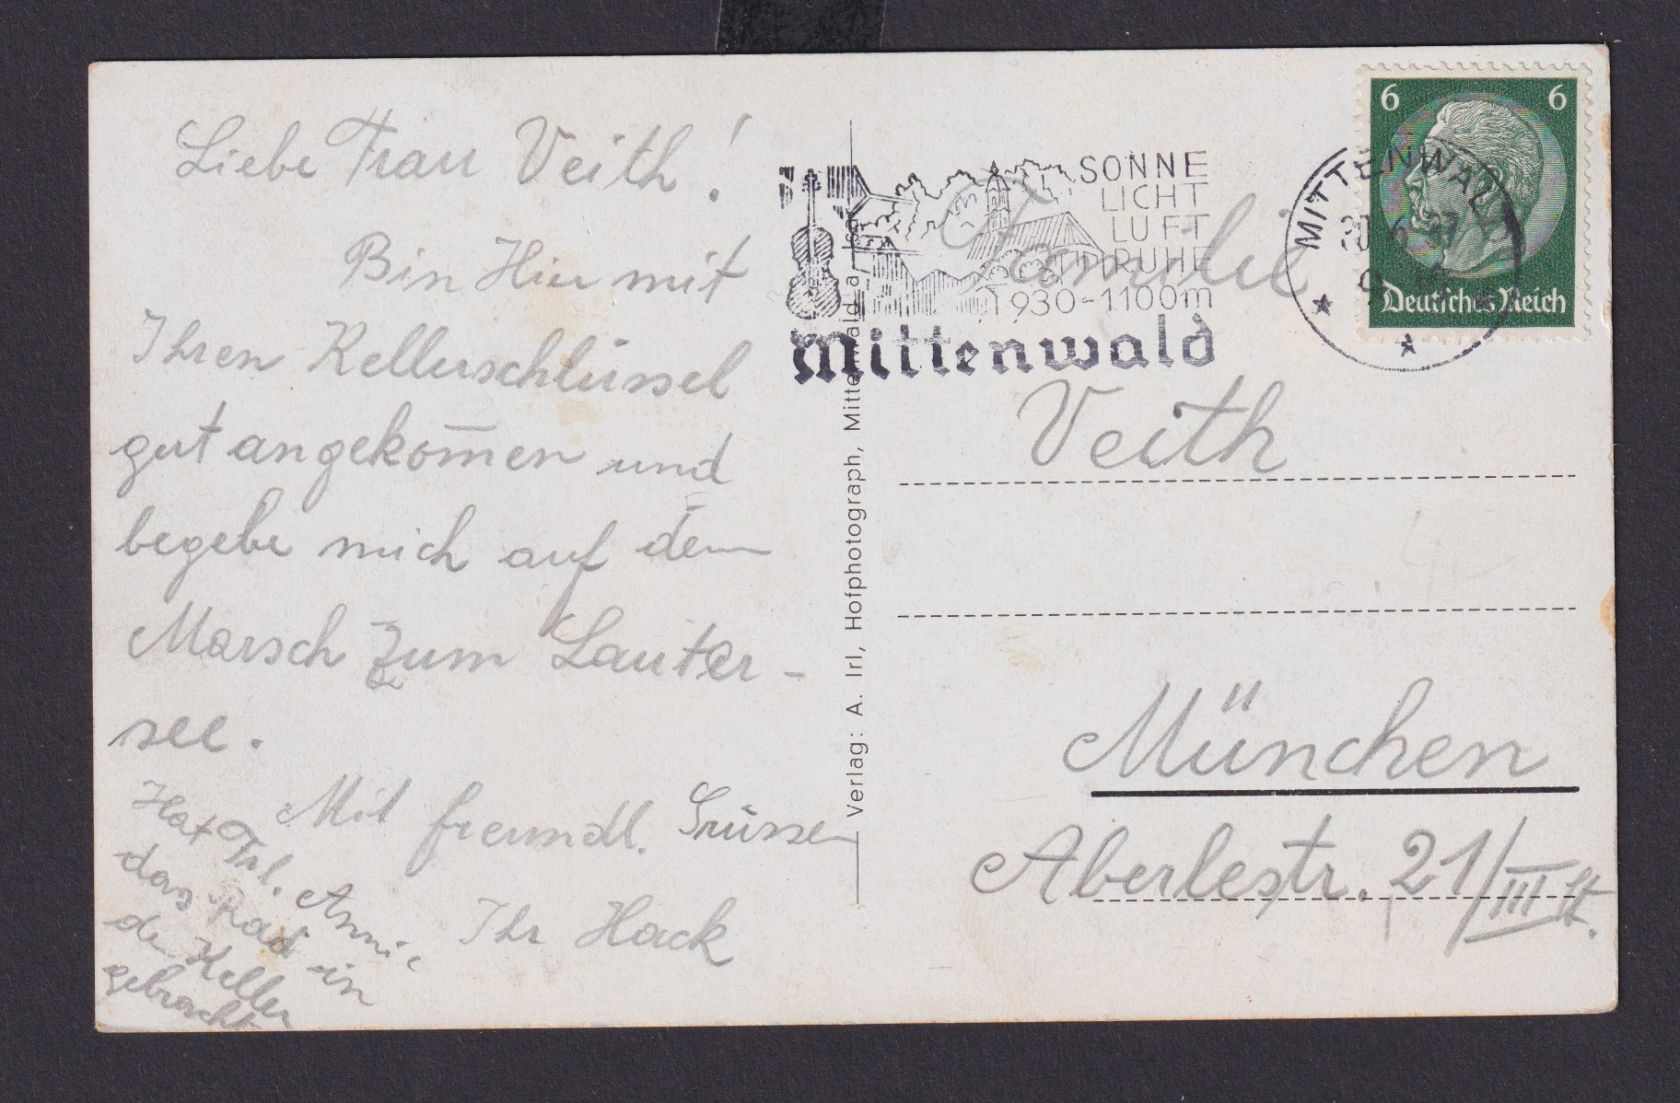 Liebe Frau Veith!
Bin Hier mit
Ihren Kellerschlüssel
gut angekom̅en und
begebe mich auf dem
Marsch zum Lauter-
see.
Mit freundl. Grüssen
Ihr Hack
Hat Frl. Anni
das Rad in
de Keller
gebracht
Verlag: A. Irl, Hofphotograph, Mittenwald a. Isar
SONNE
LICHT
LUFT
RUHE
930-1100m
Mittenwald
MITTENWALD
6 6
Deutsches Reich
Familie
Veith
München
Aberlestr. 21/III